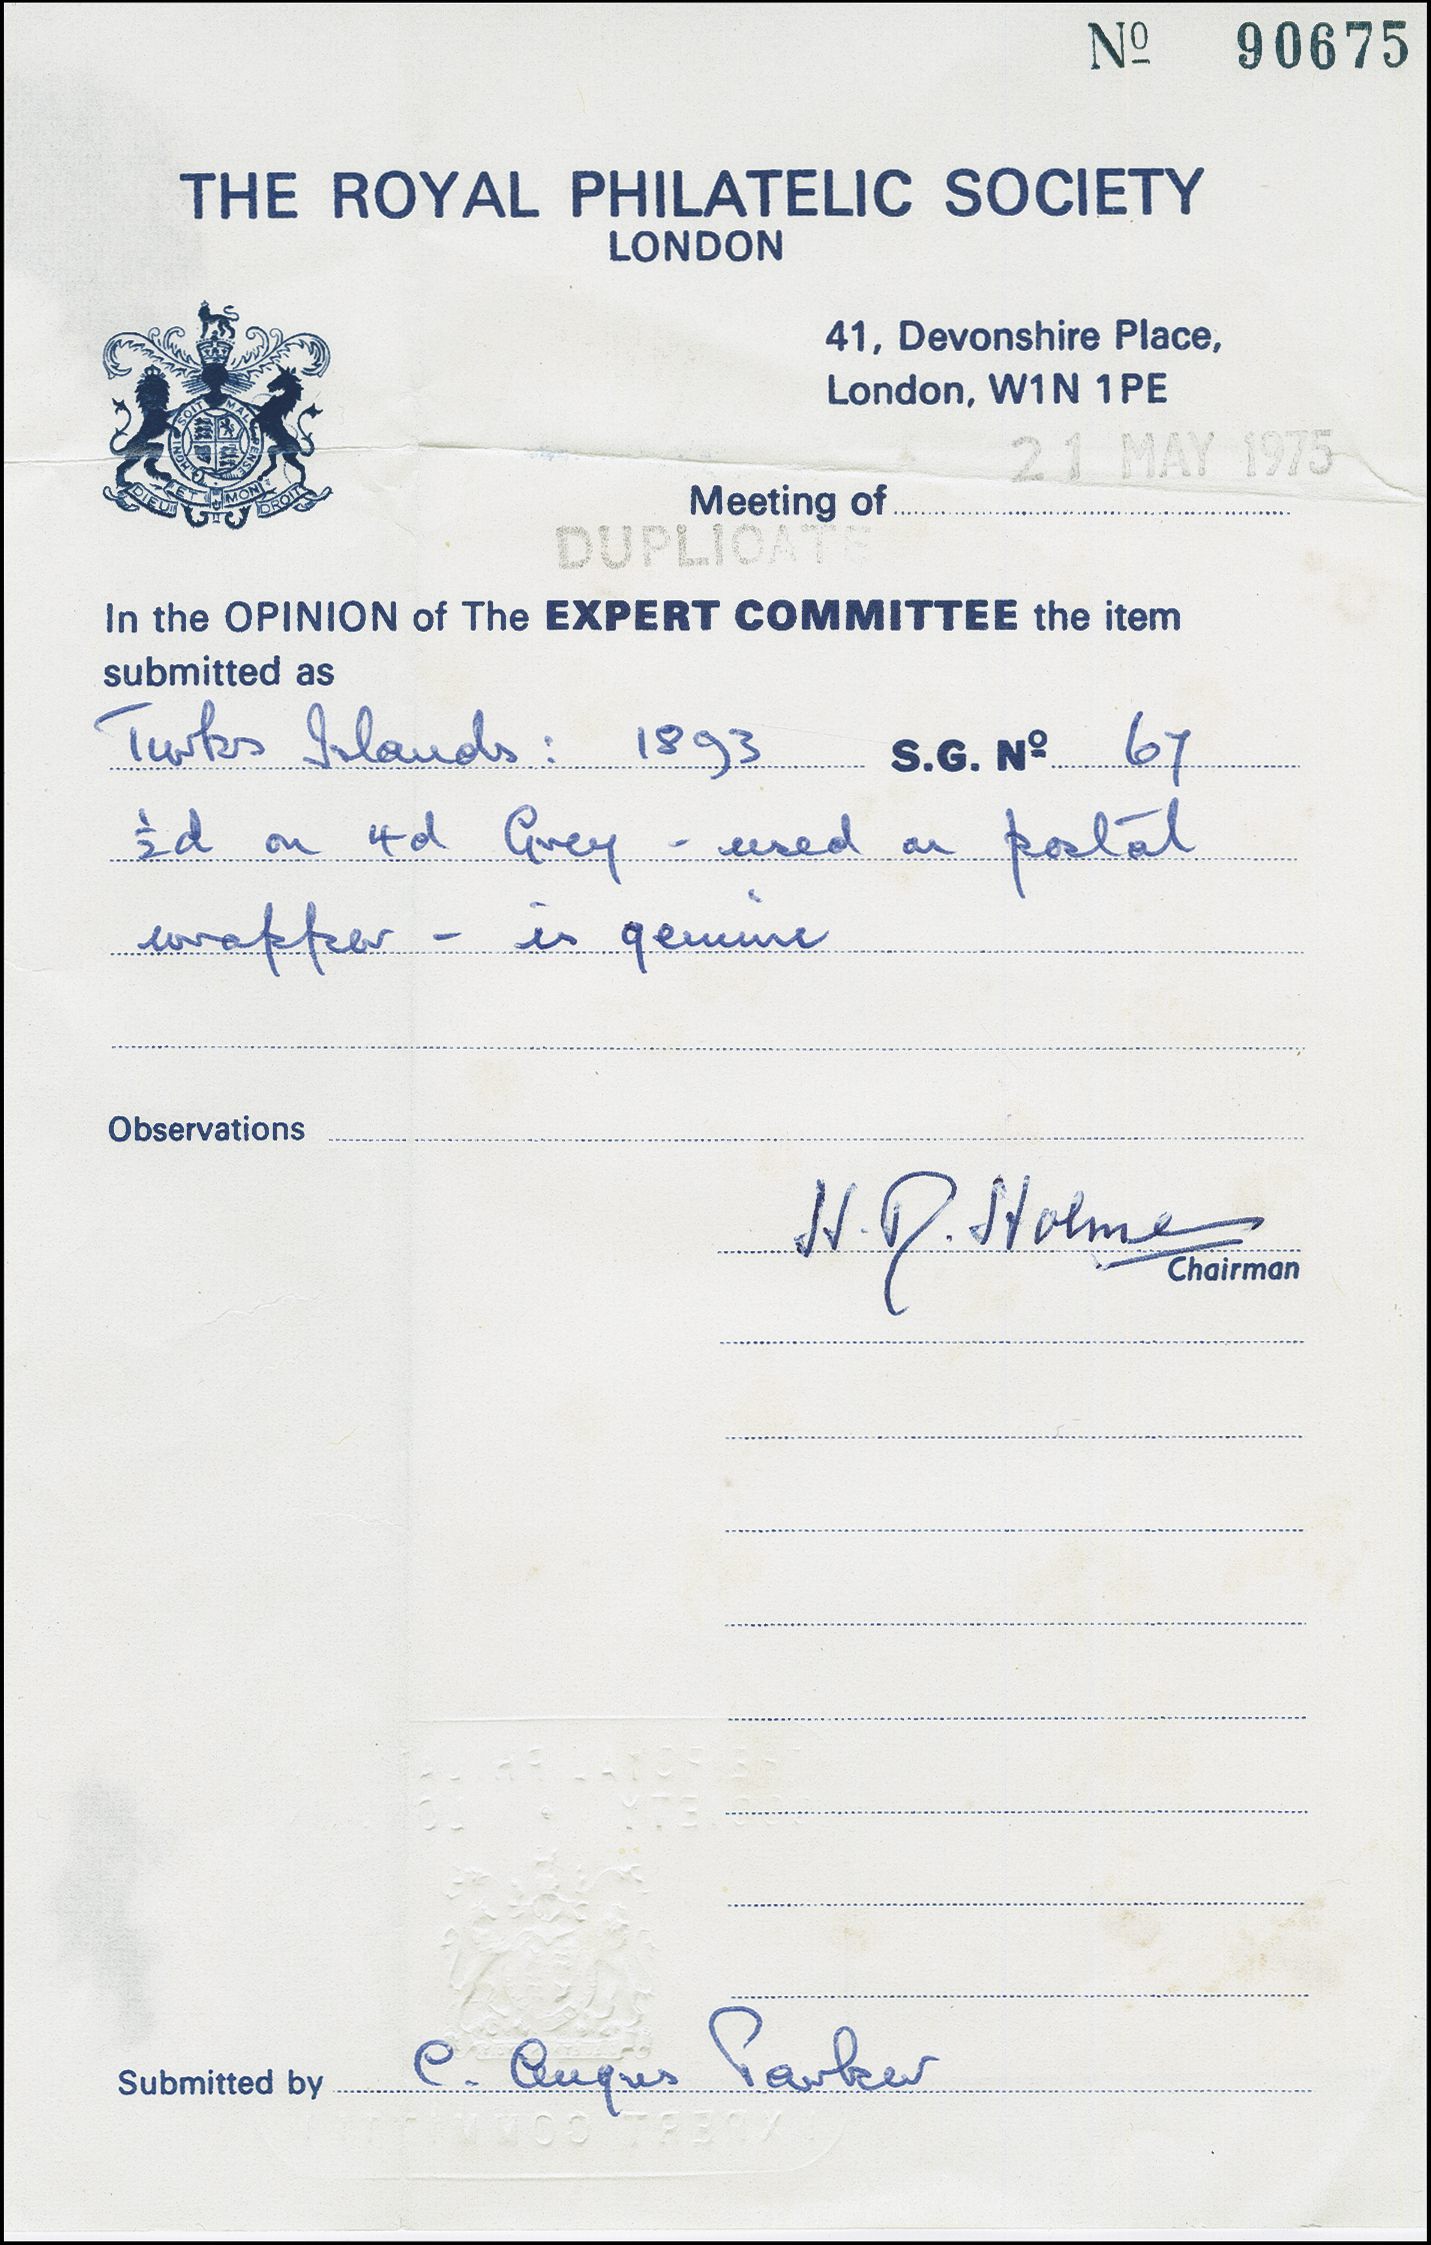 Nº 90675
THE ROYAL PHILATELIC SOCIETY
LONDON
41, Devonshire Place,
London, W1N 1PE
21 MAY 1975
Meeting of
DUPLICATE
In the OPINION of The EXPERT COMMITTEE the item
submitted as
Turks Islands: 1893 S.G. Nº 67
½d on 4d Grey - used on postal
wrapper - is genuine
Observations
H. R. Holmes
Chairman
Submitted by C. Angus Parker
SOIT MAL
DIEU ET MON DROIT
EXPERT COMMITTEE